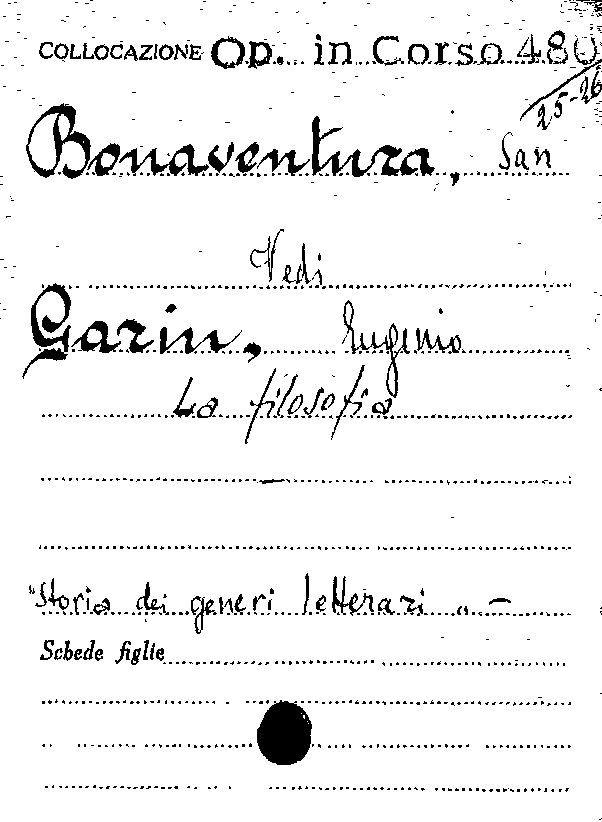 COLLOCAZIONE Op. in Corso 480
25-26
Bonaventura, San
Vedi
Garin, Eugenio
La filosofia
"Storia dei generi letterari" -
Schede figlie